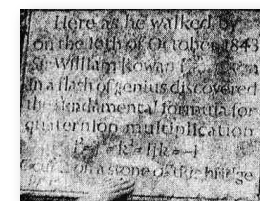 Here as he walked by
on the 16th of October 1843
Sir William Rowan
in a flash of genius discovered
the fundamental formula for
quaternion multiplication
k² = ijk = −1
on a stone of this bridge